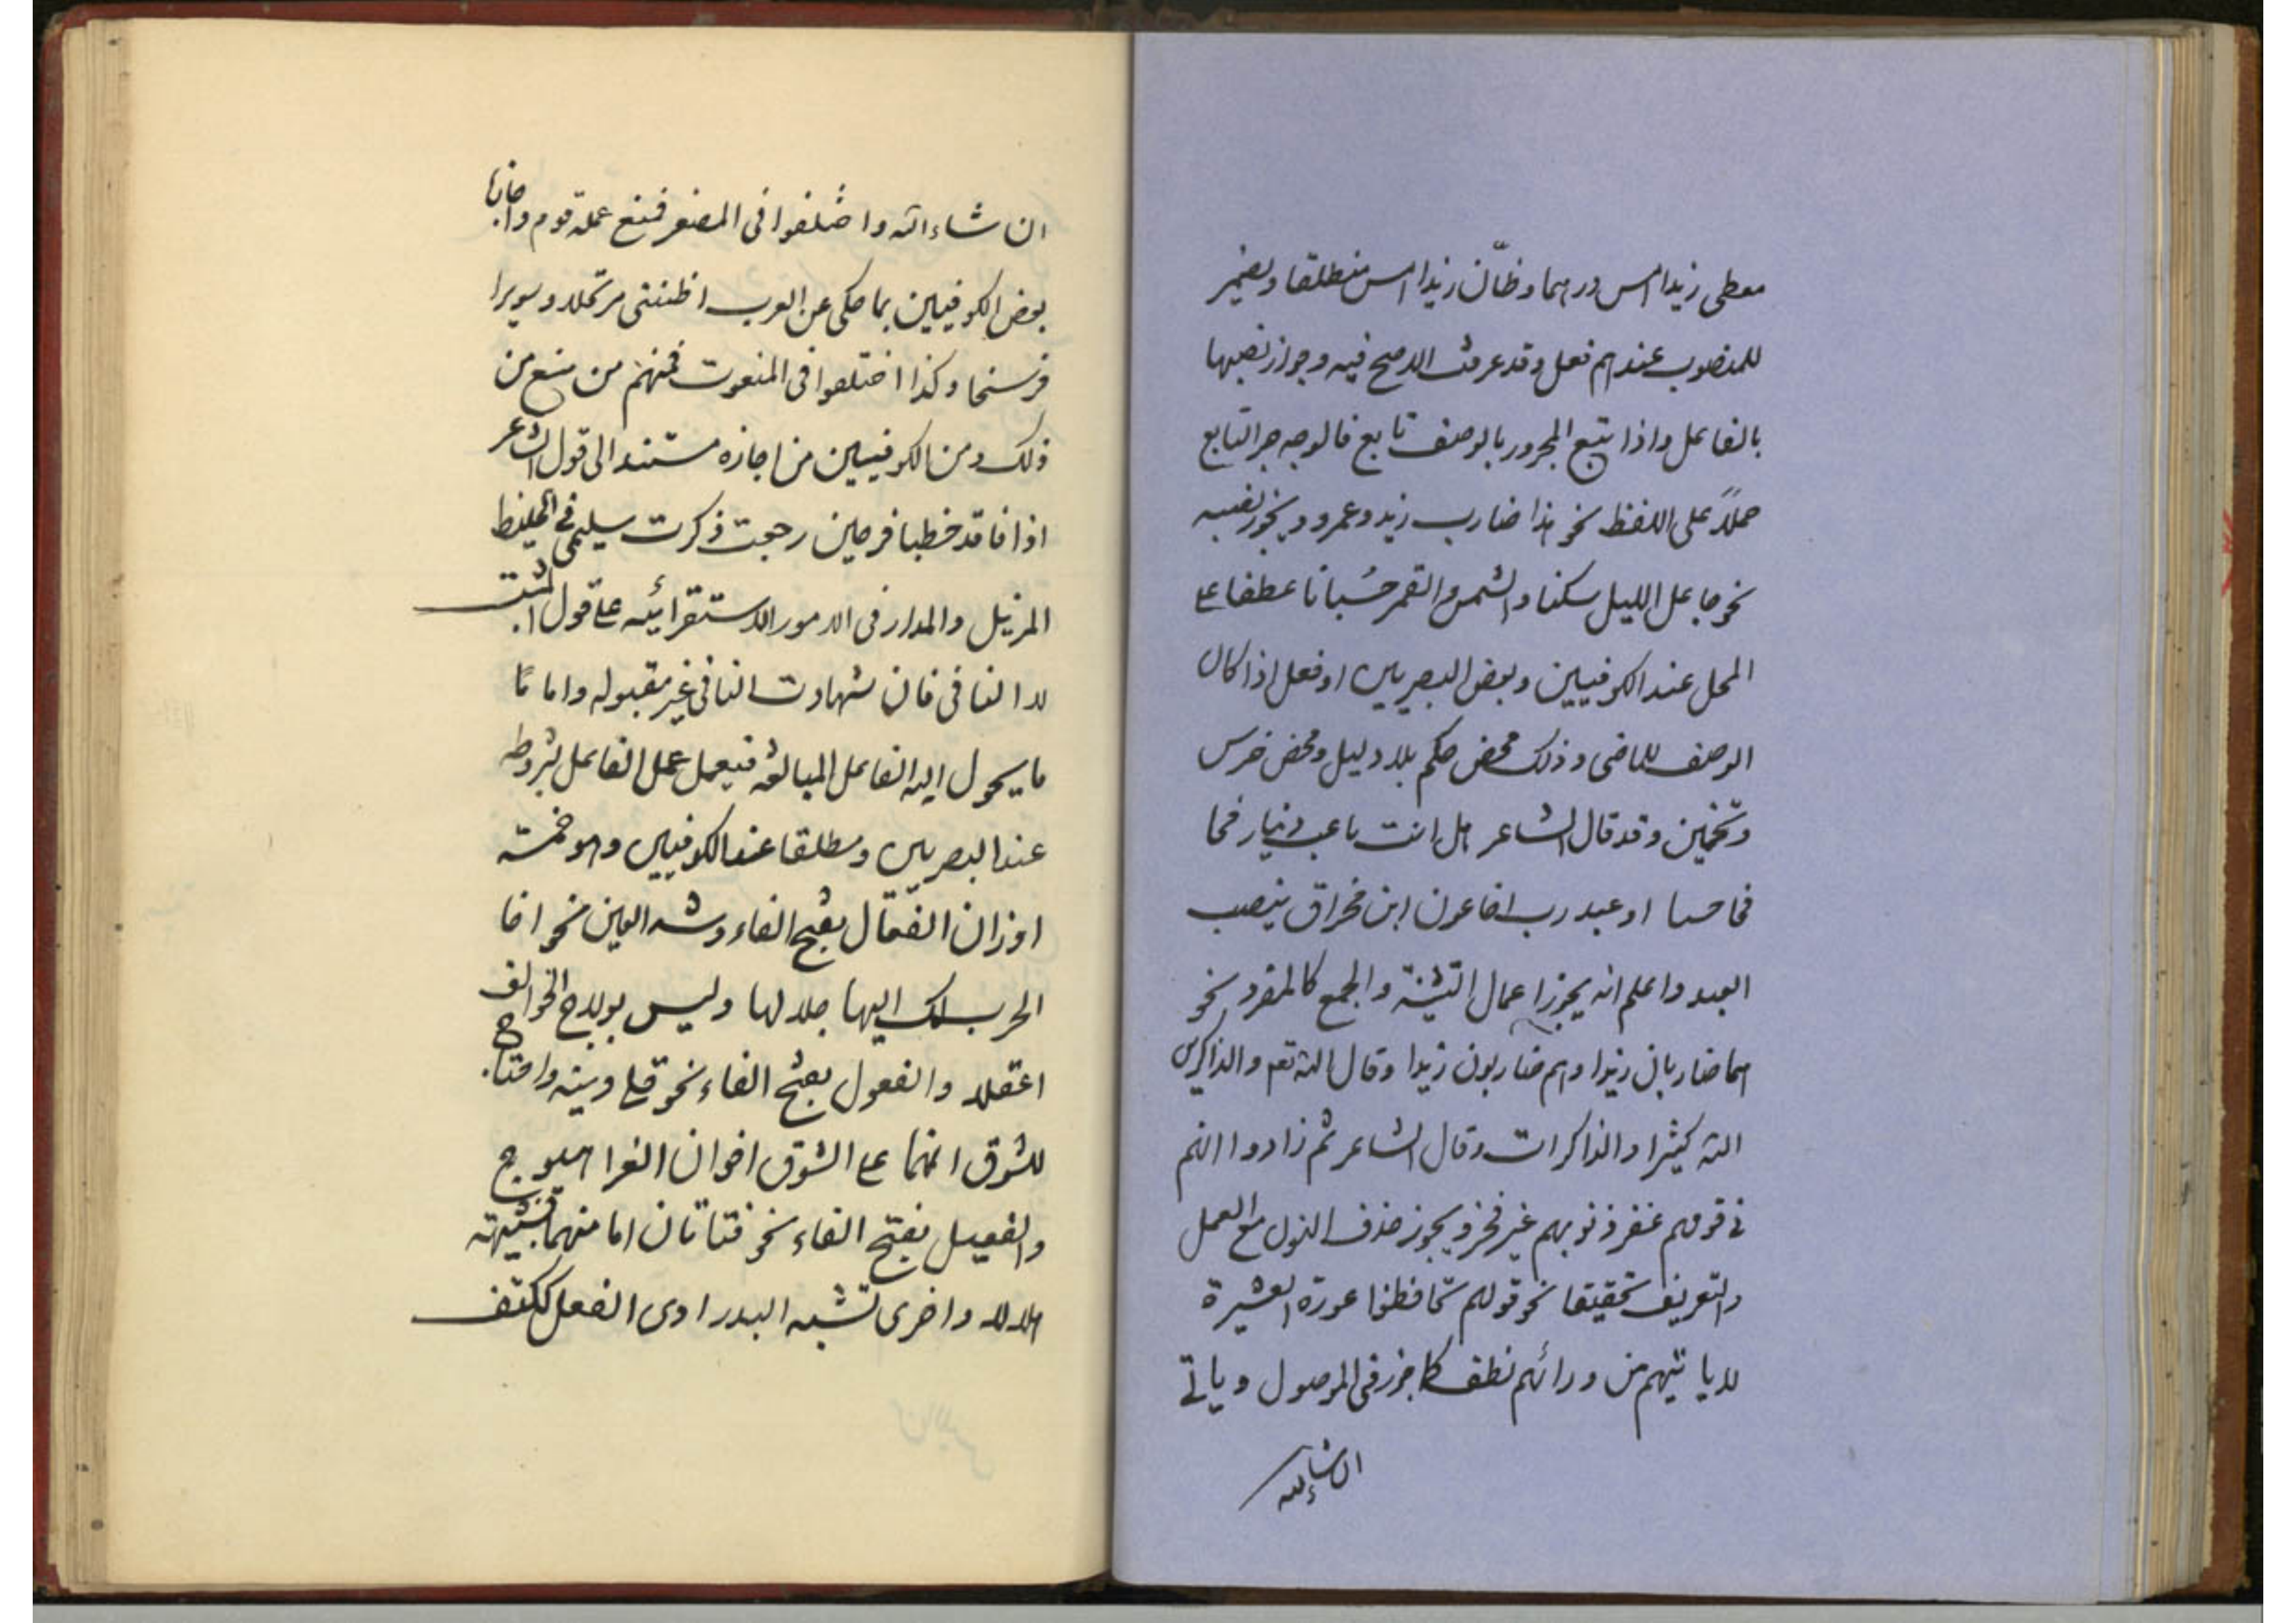 معطی زیدا امس درهما و ظانّ زیدا امس منطلقا و یضمیر
للمنصوب عندهم فعل و قد عرفت الاصح فیه و جواز نصبها
بالفاعل و اذا تتبع المجرور بالوصف تابع فالوجه جر التابع
حملاً علی اللفظ نحو هذا ضارب زید و عمرو و یجوز نصبه
نحو جاعل اللیل سکنا و الشمس و القمر حسبانا عطفا علی
المحل عند الکوفیین و بعض البصریین او فعل اذا کان
الوصف للماضی و ذلک محض حکم بلا دلیل و محض خرس
و تخمین و قد قال الشاعر هل انت باعث دینار
او عبد رب اخا عون ابن مخراق بنصب
العبد و اعلم انه یجوز اعمال التثنیة و الجمع کالمفرد نحو
هما ضاربان زیدا و هم ضاربون زیدا و قال الله تعم و الذاکرین
الله کثیرا و الذاکرات و قال الشاعر ثم زادوا انهم
فی قومهم غفر ذنوبهم غیر فخر و یجوز حذف النون مع العمل
و التعریف تحقیقا نحو قولهم تحافظوا عورة العشیرة
لا یاتیهم من ورائهم نطف کما جوز فی الموصول و یاتی
ان شاء الله
ان شاء الله و اختلفوا فی المصغر فمنع عمله قوم و اجازها
بعض الکوفیین بما حکی عن العرب اظننتی مرتحلا و سویرا
فرسخا و کذا اختلفوا فی المنعوت فمنهم من منع من
ذلک و من الکوفیین من اجازه مستندا الی قول الشاعر
اذا فاقد خطباء فرحین رجعت ذکرت سلیمی فی الخلیط
المزیل و المدار فی الامور الاستقرائیه علی قول المثبت
لا النافی فان شهادت النافی غیر مقبوله و اما
ما یحول الیه الفاعل للمبالغه فیعمل عمل الفاعل بشروطه
عند البصریین و مطلقا عند الکوفیین و هو خمسة
اوزان الفعّال بفتح الفاء و شد العین نحو اخا
الحرب لک الیها جلالها و لیس بولاج الخوالف
اعقلا و الفعول بفتح الفاء نحو قلی دینه و اهتاج
للشوق انها علی الشوق اخوان الغرا هیوج
و الفعیل بفتح الفاء نحو فتاتان اما منهما فشبیهة
هلالا و اخری تشبه البدرا و ی الفعل ککتف